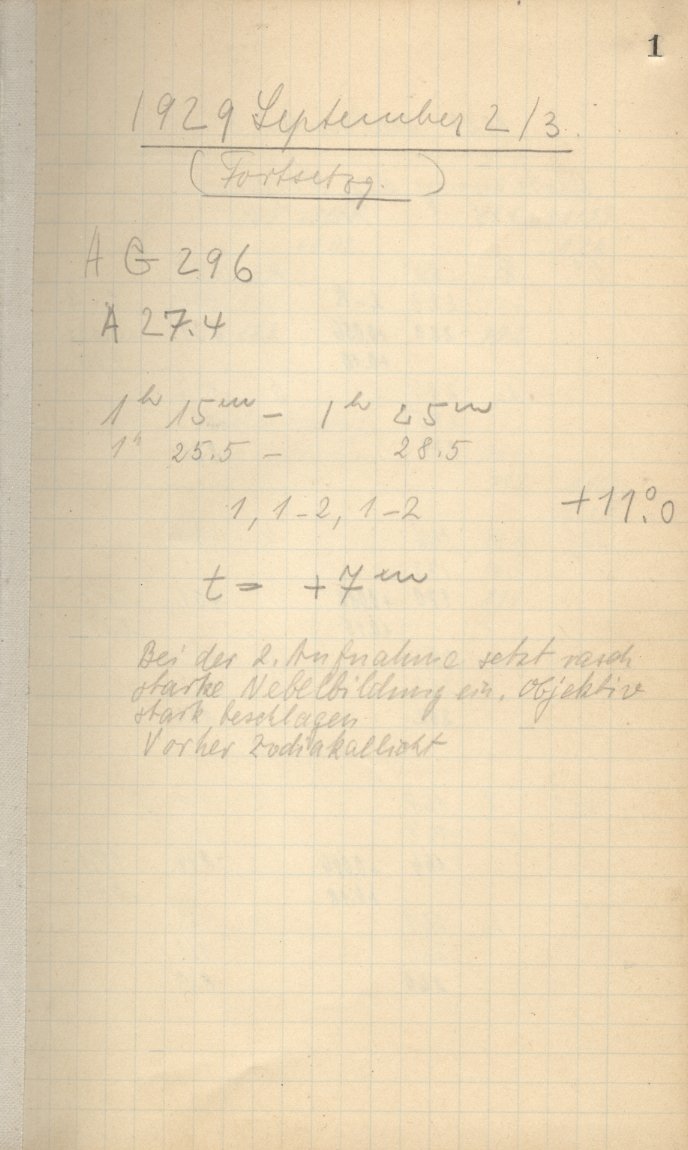 1
1929 September 2/3.
(Fortsetzg.)
AG 296
A 27.4
1ʰ 15ᵐ – 1ʰ 25ᵐ
1ʰ 25.5 – 28.5
1, 1–2, 1–2 +11°.0
t = +7ᵐ
Bei der 2. Aufnahme setzt rasch
starke Nebelbildung ein. Objektive
stark beschlagen
Vorher Zodiakallicht